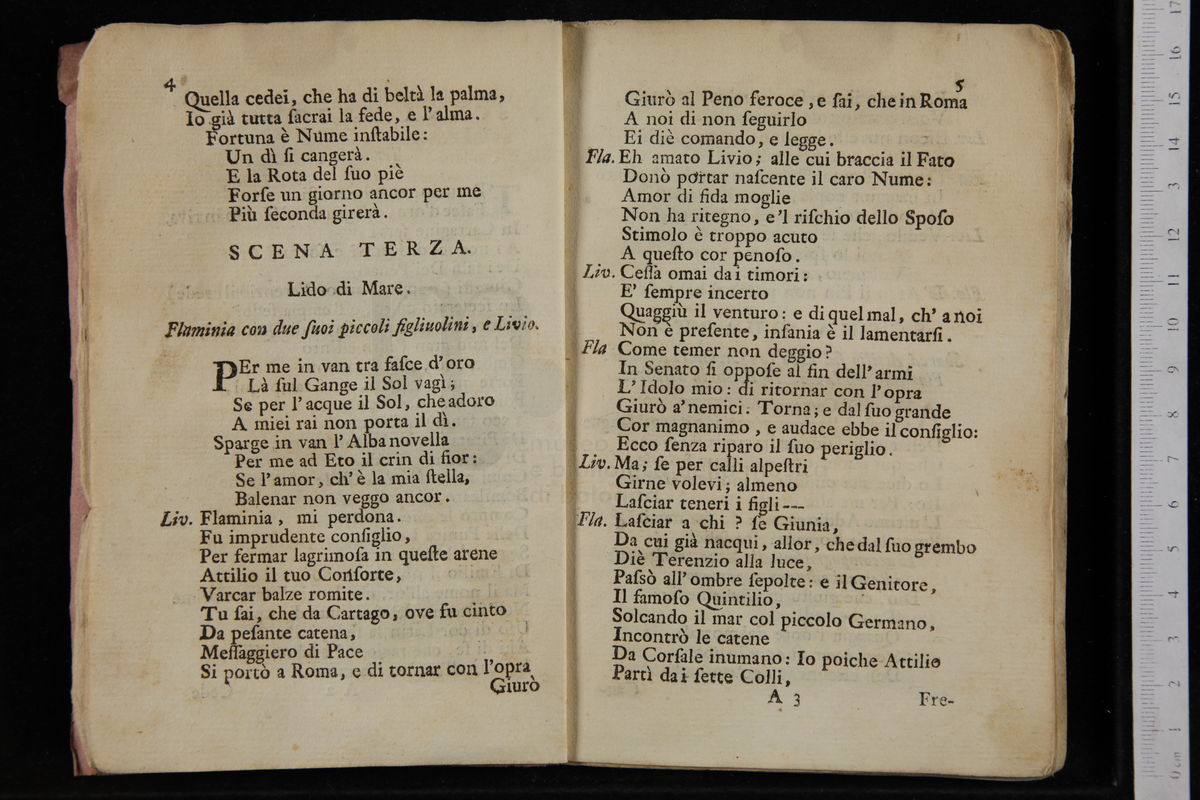 4
Quella cedei, che ha di beltà la palma,
Io già tutta ſacrai la fede, e l'alma.
Fortuna è Nume inſtabile:
Un dì ſi cangerà.
E la Rota del ſuo piè
Forſe un giorno ancor per me
Più ſeconda girerà.
SCENA TERZA.
Lido di Mare.
Flaminia con due ſuoi piccoli figliuolini, e Livio.
PEr me in van tra faſce d'oro
Là ſul Gange il Sol vagì;
Se per l'acque il Sol, che adoro
A miei rai non porta il dì.
Sparge in van l'Alba novella
Per me ad Eto il crin di fior:
Se l'amor, ch'è la mia ſtella,
Balenar non veggo ancor.
Liv. Flaminia, mi perdona.
Fu imprudente conſiglio,
Per fermar lagrimoſa in queſte arene
Attilio il tuo Conſorte,
Varcar balze romite.
Tu ſai, che da Cartago, ove fu cinto
Da peſante catena,
Meſſaggiero di Pace
Si portò a Roma, e di tornar con l'opra
Giurò
5
Giurò al Peno feroce, e ſai, che in Roma
A noi di non ſeguirlo
Ei diè comando, e legge.
Fla. Eh amato Livio; alle cui braccia il Fato
Donò portar naſcente il caro Nume:
Amor di fida moglie
Non ha ritegno, e'l riſchio dello Spoſo
Stimolo è troppo acuto
A queſto cor penoſo.
Liv. Ceſſa omai dai timori:
E' ſempre incerto
Quaggiù il venturo: e di quel mal, ch' a noi
Non è preſente, inſania è il lamentarſi.
Fla Come temer non deggio?
In Senato ſi oppoſe al fin dell'armi
L'Idolo mio: di ritornar con l'opra
Giurò a' nemici. Torna; e dal ſuo grande
Cor magnanimo, e audace ebbe il conſiglio:
Ecco ſenza riparo il ſuo periglio.
Liv. Ma; ſe per calli alpeſtri
Girne volevi; almeno
Laſciar teneri i figli---
Fla. Laſciar a chi? ſe Giunia,
Da cui già nacqui, allor, che dal ſuo grembo
Diè Terenzio alla luce,
Paſsò all'ombre ſepolte: e il Genitore,
Il famoſo Quintilio,
Solcando il mar col piccolo Germano,
Incontrò le catene
Da Corſale inumano: Io poiche Attilio
Partì dai ſette Colli,
A 3
Fre-